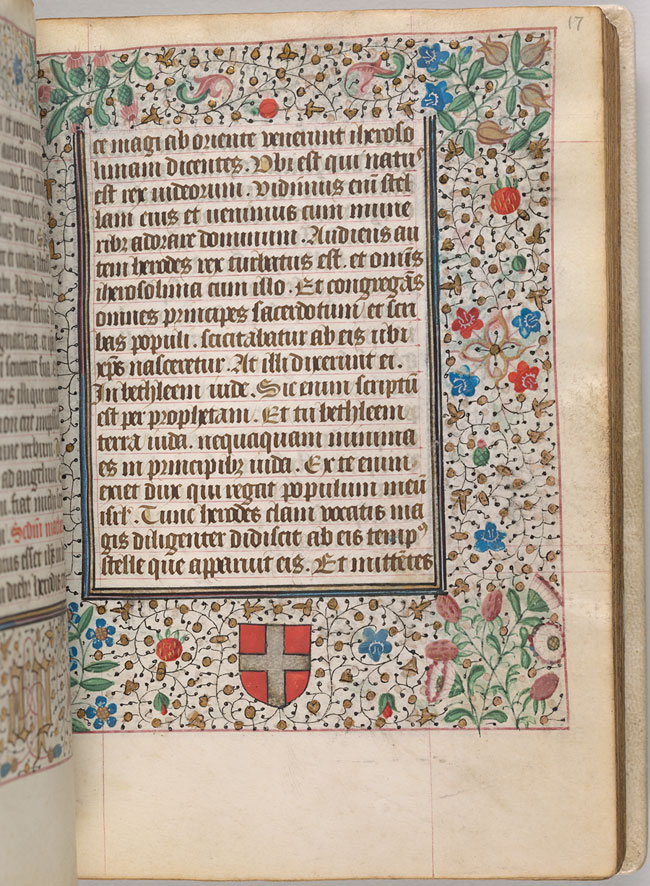 17
ce magi ab oriente venerunt iheroso
limam dicentes. Vbi est qui natu⁹
est rex iudeorum. Vidimus enī stel
lam eius et uenimus cum mune
ribꝫ adorare dominum. Audiens au
tem herodes rex turbatus est. et omīs
iherosolima cum illo. Et congregās
omnes principes sacerdotum et scri
bas populi. scicitabatur ab eis ubi
xp̄s nasceretur. At illi dixerunt ei.
In bethleem iude. Sic enim scriptū
est per prophetam. Et tu bethleem
terra iuda. nequaquam minima
es in principibꝫ iuda. Ex te enim
exiet dux qui regat populum meū
isrl̄. Tunc herodes clam vocatis ma
gis diligenter didiscit ab eis temp⁹
stelle que apparuit eis. Et mittētes